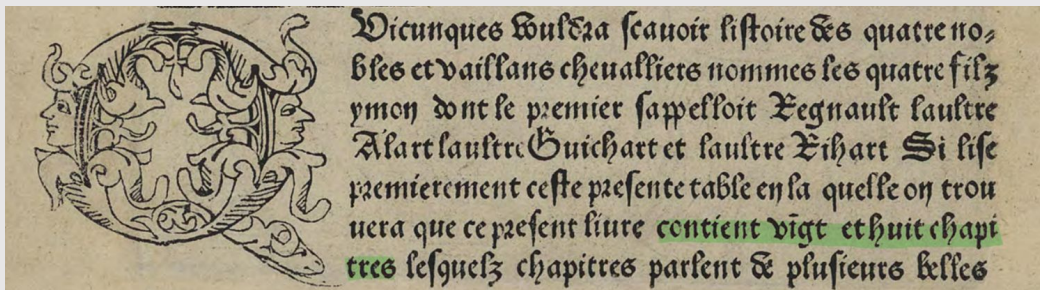 QVicunques vouldra scauoir listoire des quatre no⸗
bles et vaillans cheualliers nommes les quatre filz
ymon dont le premier sappelloit Regnault laultre
Alart laultre Guichart et laultre Rihart Si lise
premierement ceste presente table en la quelle on trou
uera que ce present liure contient vīgt et huit chapi
tres lesquelz chapitres parlent de plusieurs belles